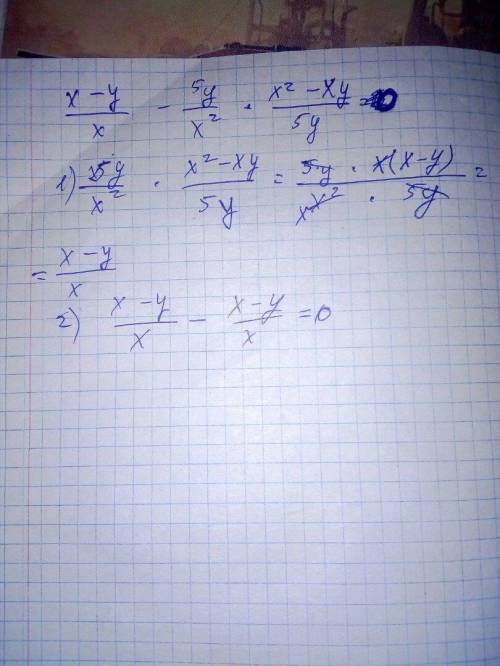 x - y / x - 5y / x² · x² - xy / 5y = 0
1) 5y / x² · x² - xy / 5y = 5y · x(x - y) / x² · 5y =
= x - y / x
2) x - y / x - x - y / x = 0